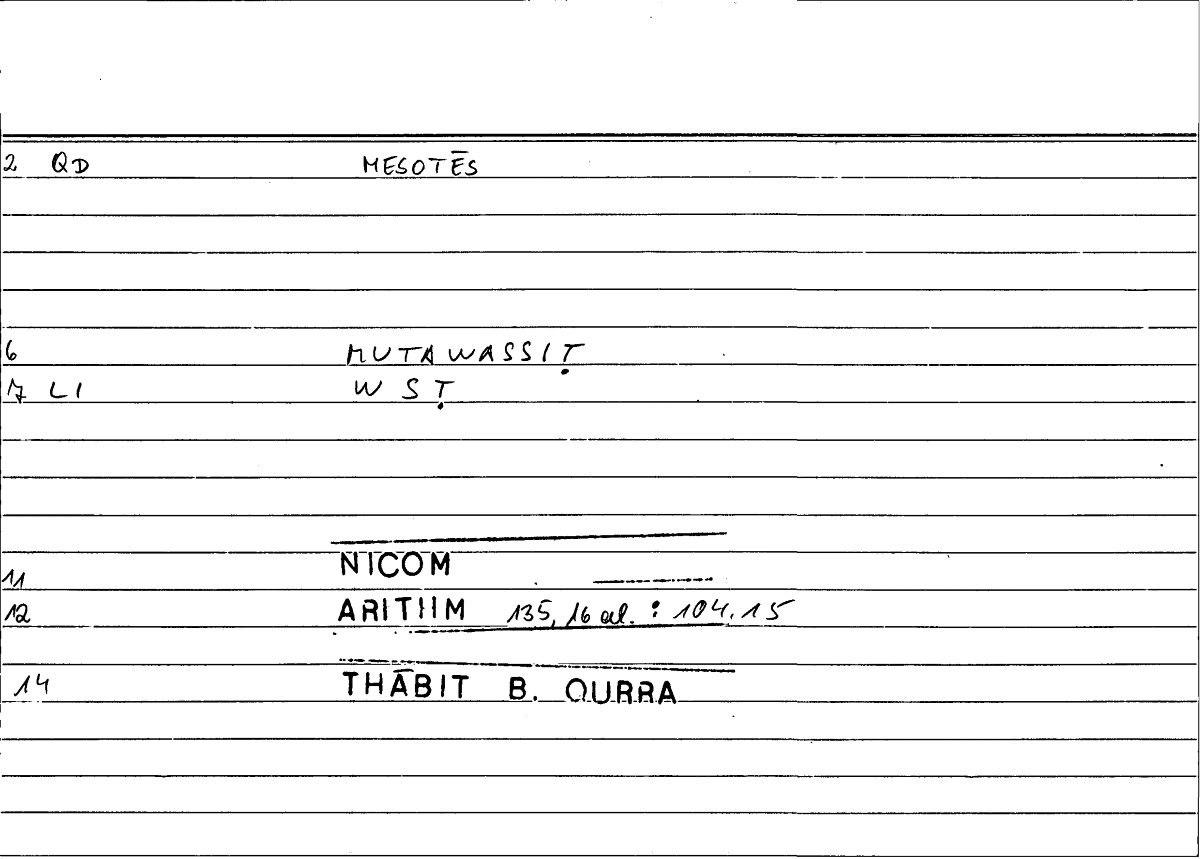 2 QD MESOTĒS
6 MUTAWASSIṬ
7 LI W S Ṭ
11 NICOM
12 ARITHM 135, 16 al. : 104.15
14 THĀBIT B. QURRA